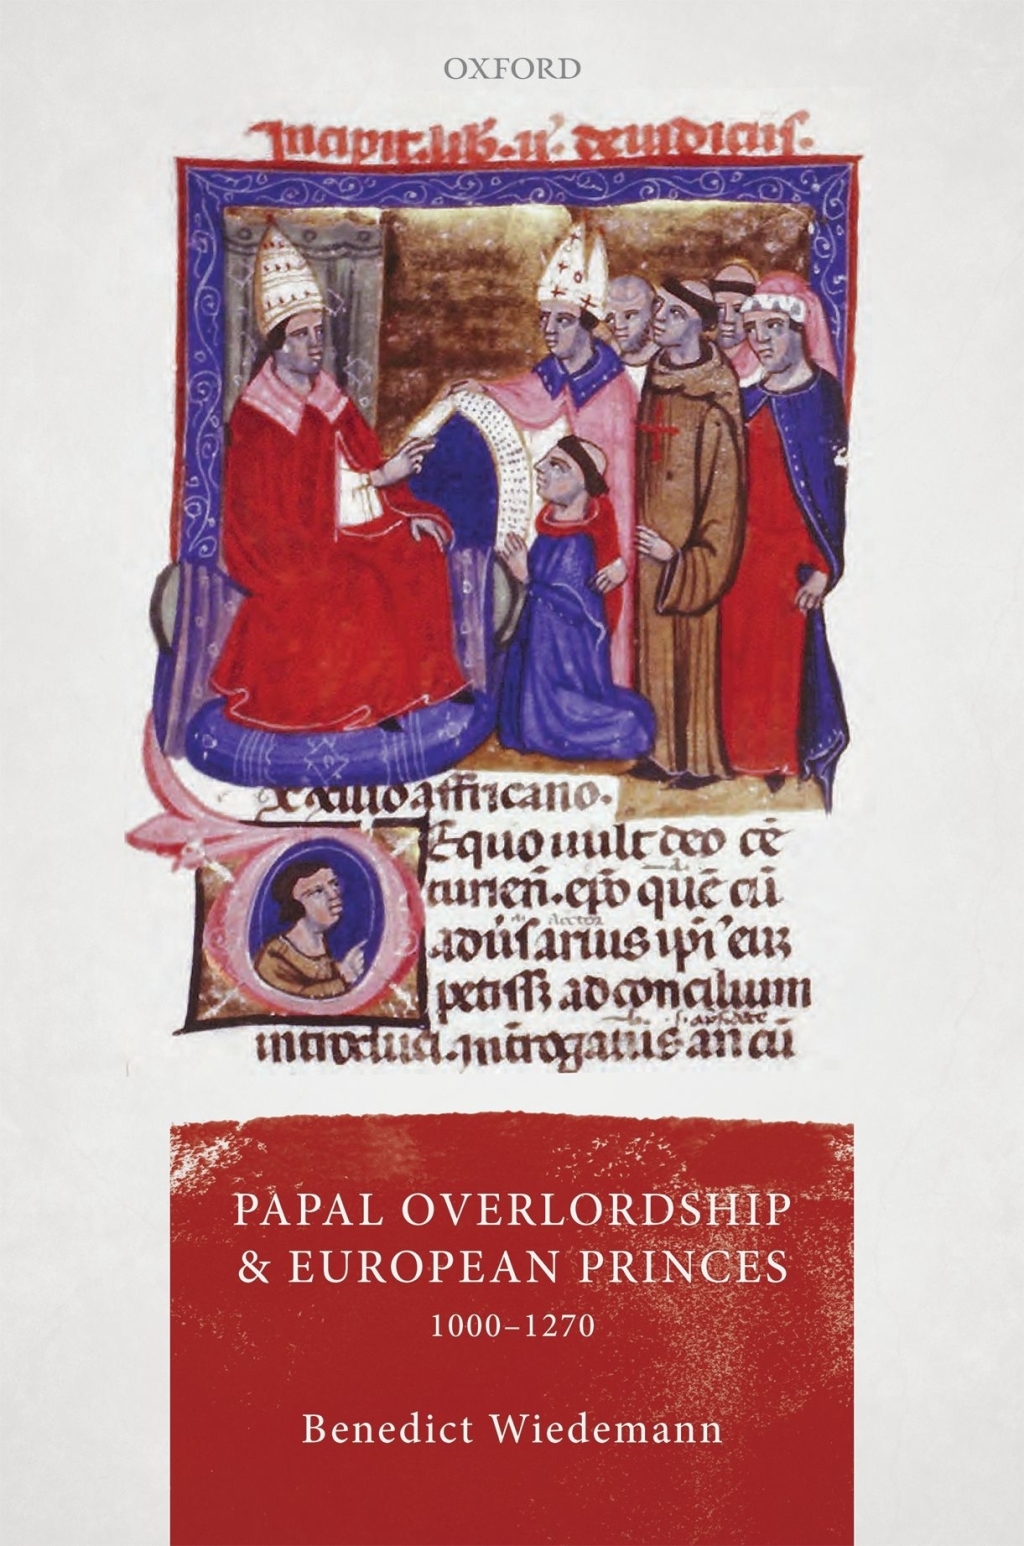 OXFORD
Incipit. lib. ii. de iudiciis.
affricano.
Equo uult deo cē
turień. ep̄o quē cū
aduſarius ipi' eiꝫ
petiſſꝫ ad concilium
introduci. introgatus an cū
PAPAL OVERLORDSHIP
& EUROPEAN PRINCES
1000–1270
Benedict Wiedemann